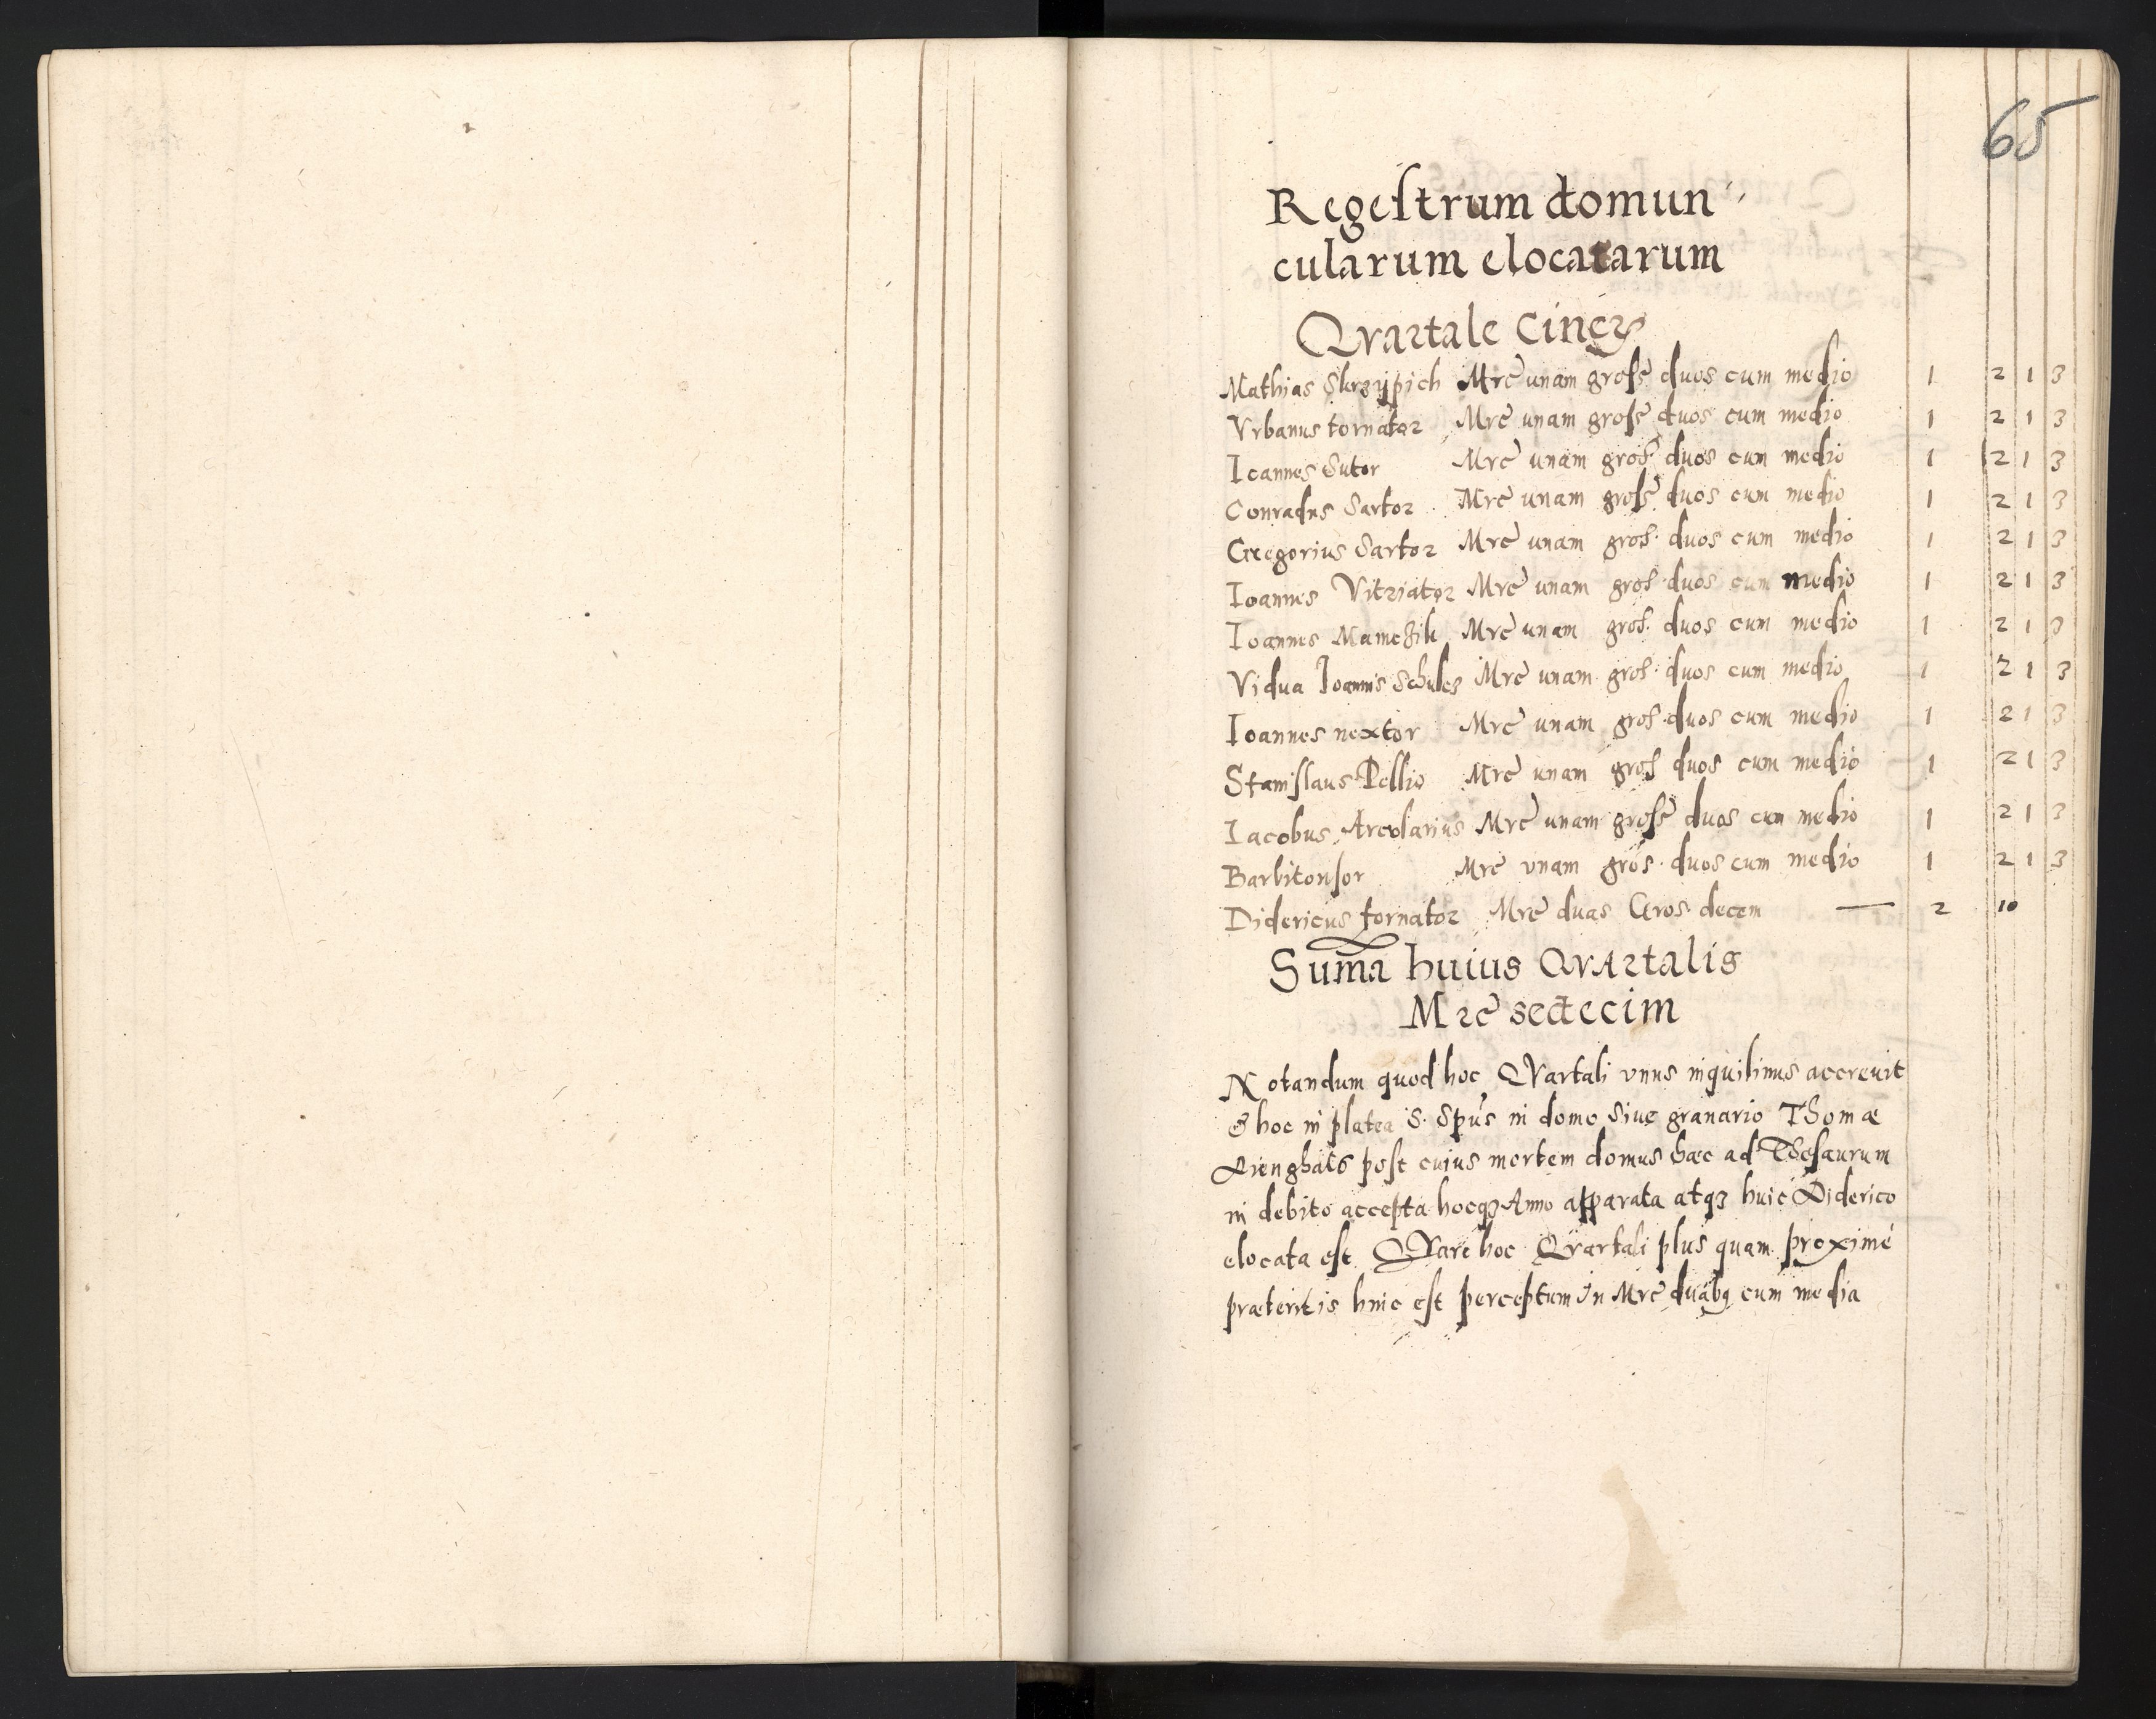 65
Regestrum domun//
cularum elocatarum
Qvartale Ciner
Mathias Skrzypich Mrc unam gross duos cum medio 1 2 1 3
Vrbanus tornator Mrc unam gross duos cum medio 1 2 1 3
Ioannes Sutor Mrc unam gros duos cum medio 1 2 1 3
Conradus Sartor Mrc unam gross duos cum medio 1 2 1 3
Gregorius Sartor Mrc unam gros. duos cum medio 1 2 1 3
Ioannes Vitriator Mrc unam gros. duos cum medio 1 2 1 3
Ioannes Mamczik Mrc unam gros. duos cum medio 1 2 1 3
Vidua Ioannis Schules Mrc unam gros. duos cum medio 1 2 1 3
Ioannes nextor Mrc unam gros. duos cum medio 1 2 1 3
Stanislaus Pellio Mrc unam gros duos cum medio 1 2 1 3
Iacobus Arcolarius Mrc unam gross duos cum medio 1 2 1 3
Barbitonsor Mrc vnam gros. duos cum medio 1 2 1 3
Didericus tornator Mrc duas Gros. decem — 2 10
Suma huius Qvartalis
Mrc sedecim
Notandum quod hoc Qvartali vnus inquilinus accreuit
& hoc in platea S. Spus in domo siue granario Thomæ
post cuius mortem domus hæc ad Thesaurum
in debito accepta hocq3 Anno apparata atq3 huic Diderico
elocata est Qvare hoc Qvartali plus quam proximé
præteritis hinc est perceptum in Mrc duabq cum media